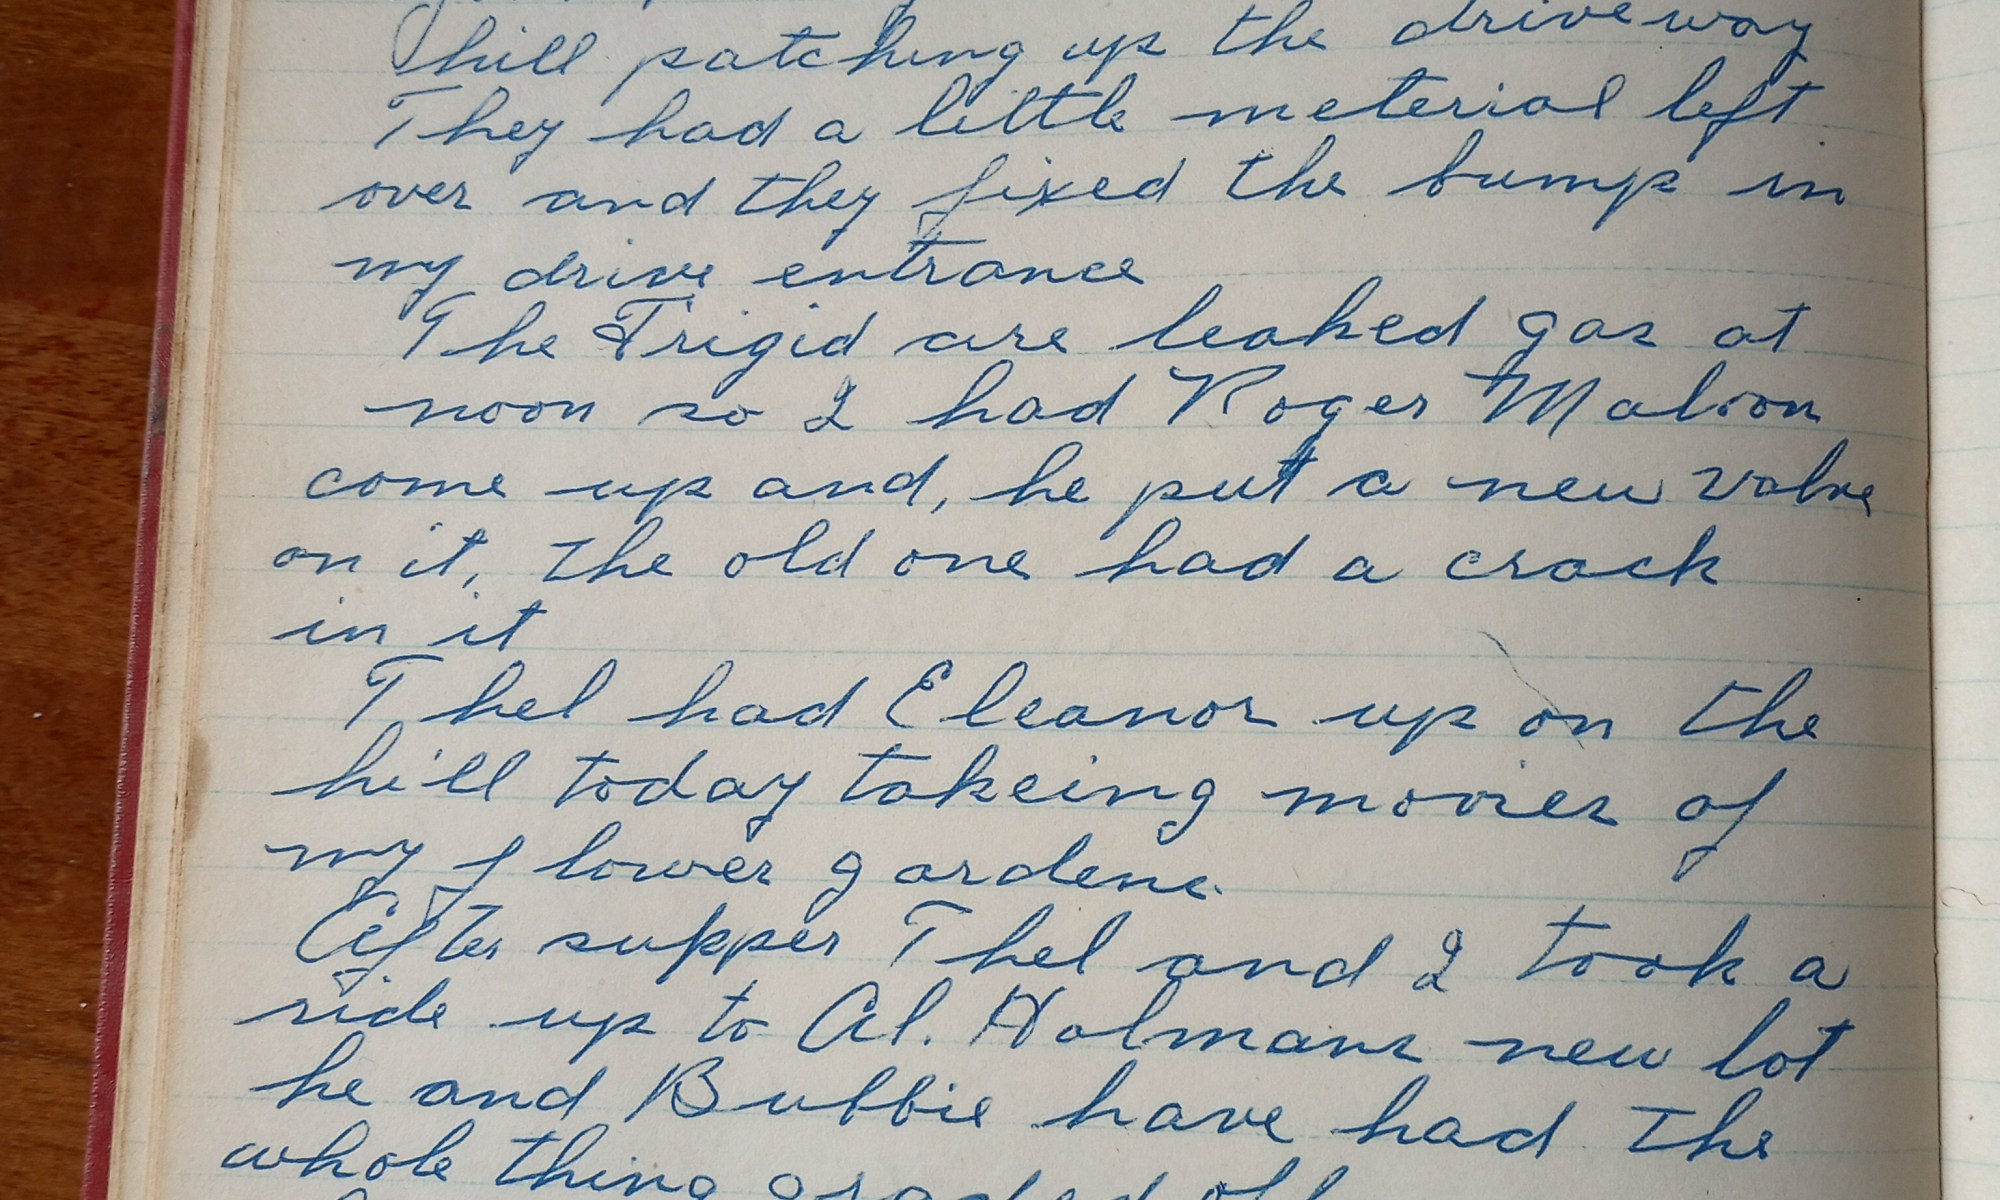 hill patching up the driveway
They had a little meterial left
over and they fixed the bump in
my drive entrance
The Frigid are leaked gas at
noon so I had Roger Maloon
come up and, he put a new valve
on it, the old one had a crack
in it
Thel had Eleanor up on the
hill today takeing movies of
my flower gardens.
After supper Thel and I took a
ride up to Al. Holmans new lot
he and Bubbie have had the
whole thing graded off